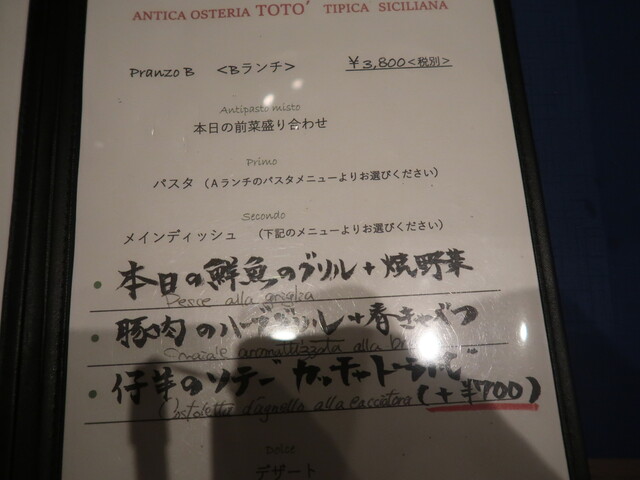 ANTICA OSTERIA TOTO' TIPICA SICILIANA
Pranzo B <Bランチ> ￥3,800<税別>
Antipasto misto
本日の前菜盛り合わせ
Primo
パスタ (Aランチのパスタメニューよりお選びください)
Secondo
メインディッシュ (下記のメニューよりお選びください)
・本日の鮮魚のグリル+焼野菜
Pesce alla griglia
・豚肉のハーブグリル+春きゃべつ
maiale aromatizzata alla
・仔羊のソテー カッチャトーラ (+¥700)
Costoletta d'agnello alla cacciatora
Dolce
デザート